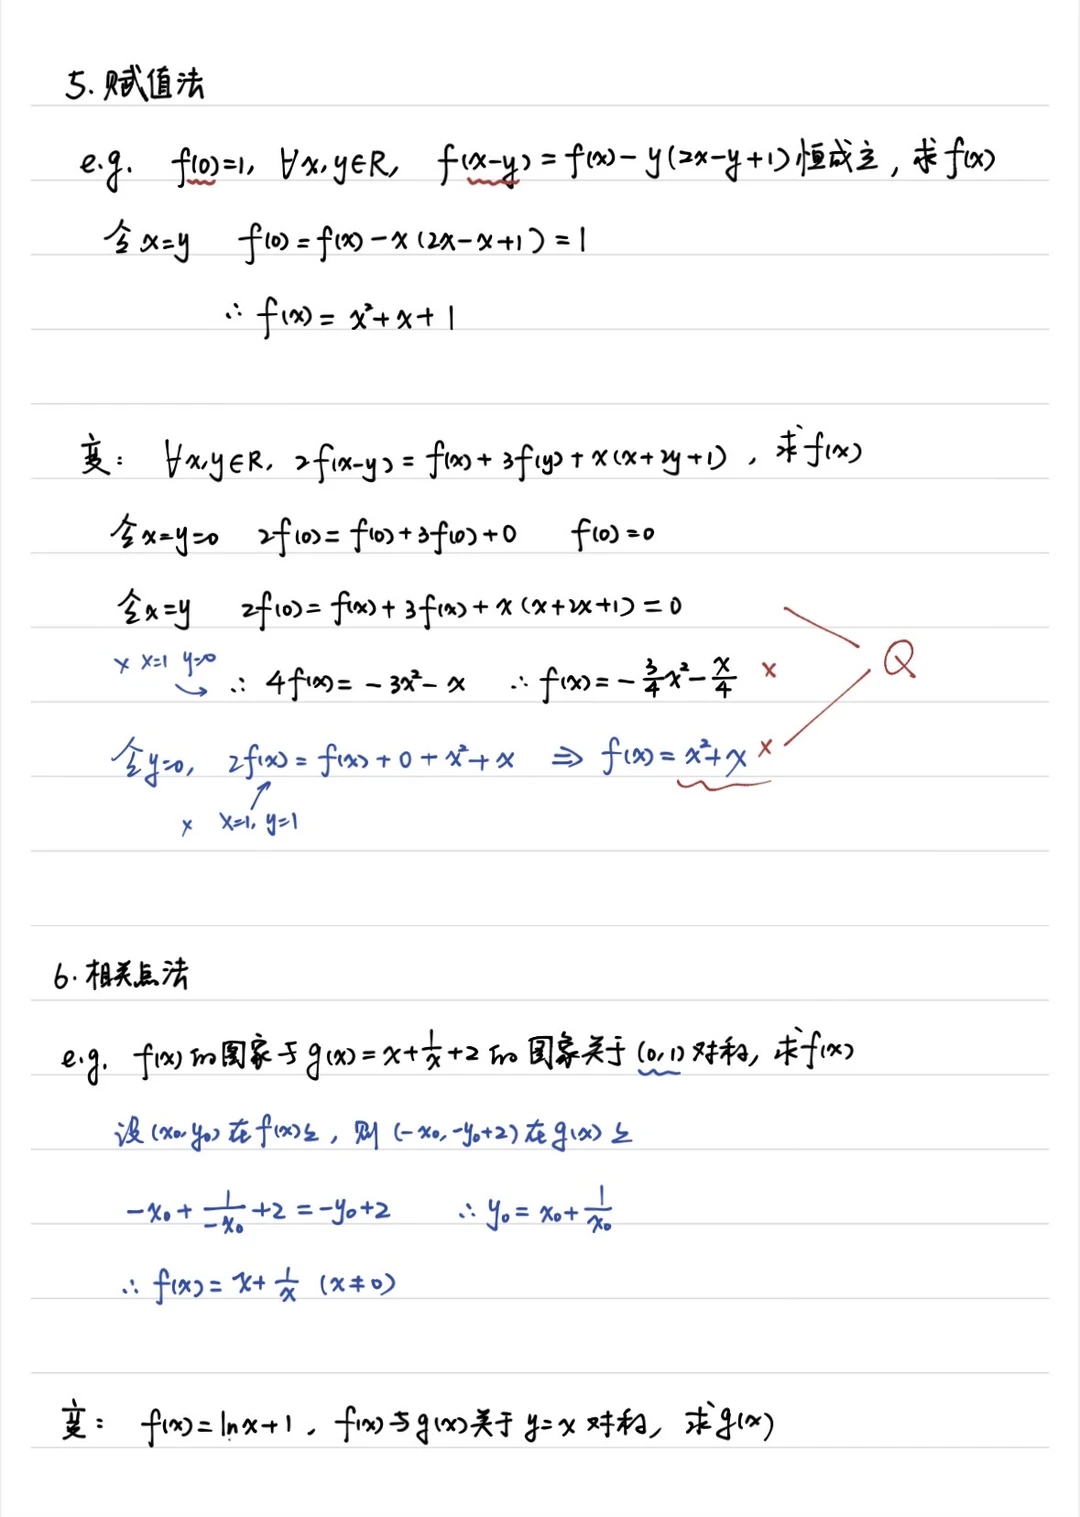 5. 赋值法
e.g. f(0)=1, ∀x,y∈R, f(x-y)=f(x)-y(2x-y+1)恒成立, 求f(x)
令x=y f(0)=f(x)-x(2x-x+1)=1
∴ f(x)=x²+x+1
变: ∀x,y∈R, 2f(x-y)=f(x)+3f(y)+x(x+2y+1), 求f(x)
令x=y=0 2f(0)=f(0)+3f(0)+0 f(0)=0
令x=y 2f(0)=f(x)+3f(x)+x(x+2x+1)=0
× x=1 y=0
Q
∴ 4f(x)=-3x²-x ∴ f(x)=-3/4x²-x/4 ×
令y=0, 2f(x)=f(x)+0+x²+x ⇒ f(x)=x²+x ×
× x=1, y=1
6. 相关点法
e.g. f(x)的图象与g(x)=x+1/x+2的图象关于(0,1)对称, 求f(x)
设(x₀,y₀)在f(x)上, 则(-x₀,-y₀+2)在g(x)上
-x₀+1/-x₀+2=-y₀+2 ∴ y₀=x₀+1/x₀
∴ f(x)=x+1/x (x≠0)
变: f(x)=lnx+1, f(x)与g(x)关于y=x对称, 求g(x)